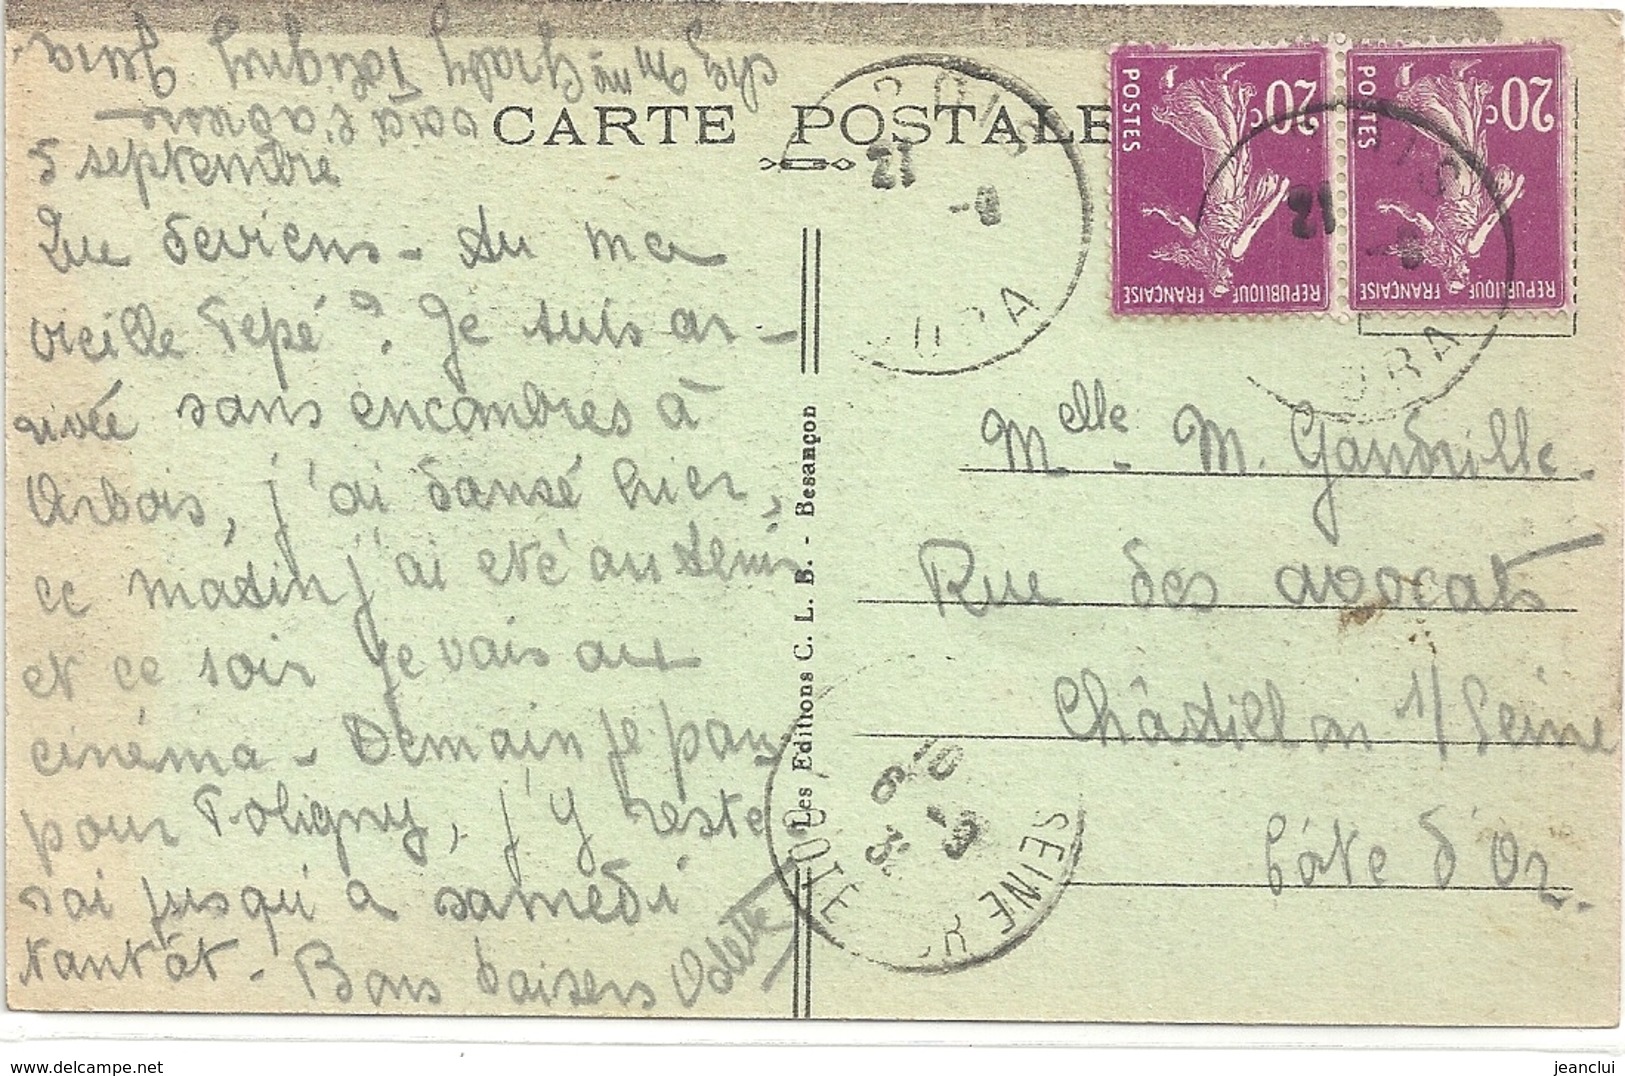 CARTE POSTALE
5 septembre
Que deviens-tu ma
vieille Pépé ? Je suis ar-
rivée sans encombres à
Arbois, j'ai dansé hier,
ce matin j'ai été au tennis
et ce soir je vais au
cinéma - Demain je pars
pour Poligny, j'y reste
rai jusqu'à samedi
tantôt - Bons baisers Odette
voici l'adresse
chez Mme Grady Poligny Jura
Les Editions C. L. B. - Besançon
POSTES 20c REPUBLIQUE FRANÇAISE
POSTES 20c REPUBLIQUE FRANÇAISE
21
JURA
21
JURA
Melle M. Gandrille
Rue des avocats
Châtillon s/ Seine
Côte d'Or.
SEINE
COTE D'OR
jeanclui